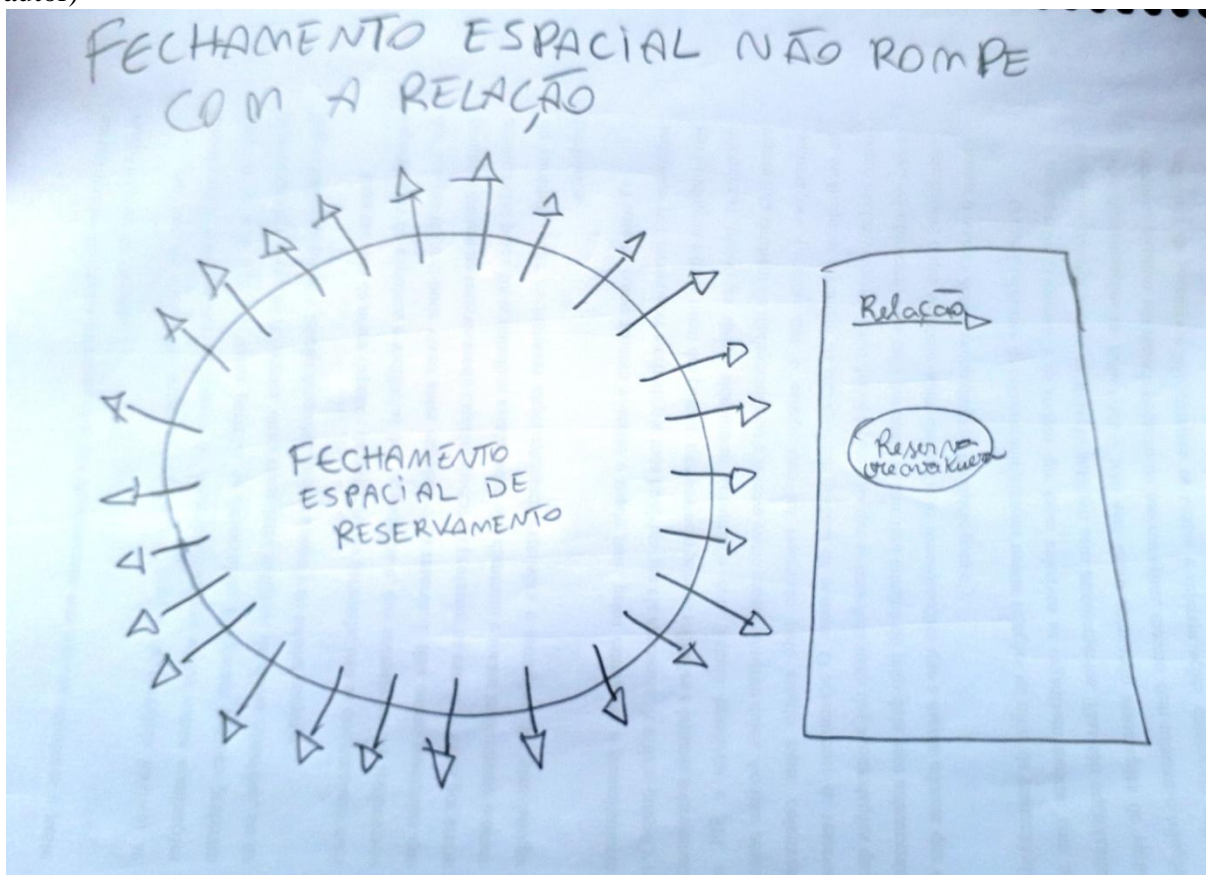 autor)
FECHAMENTO ESPACIAL NÃO ROMPE
COM A RELAÇÃO
FECHAMENTO
ESPACIAL DE
RESERVAMENTO
Relação
Reserva